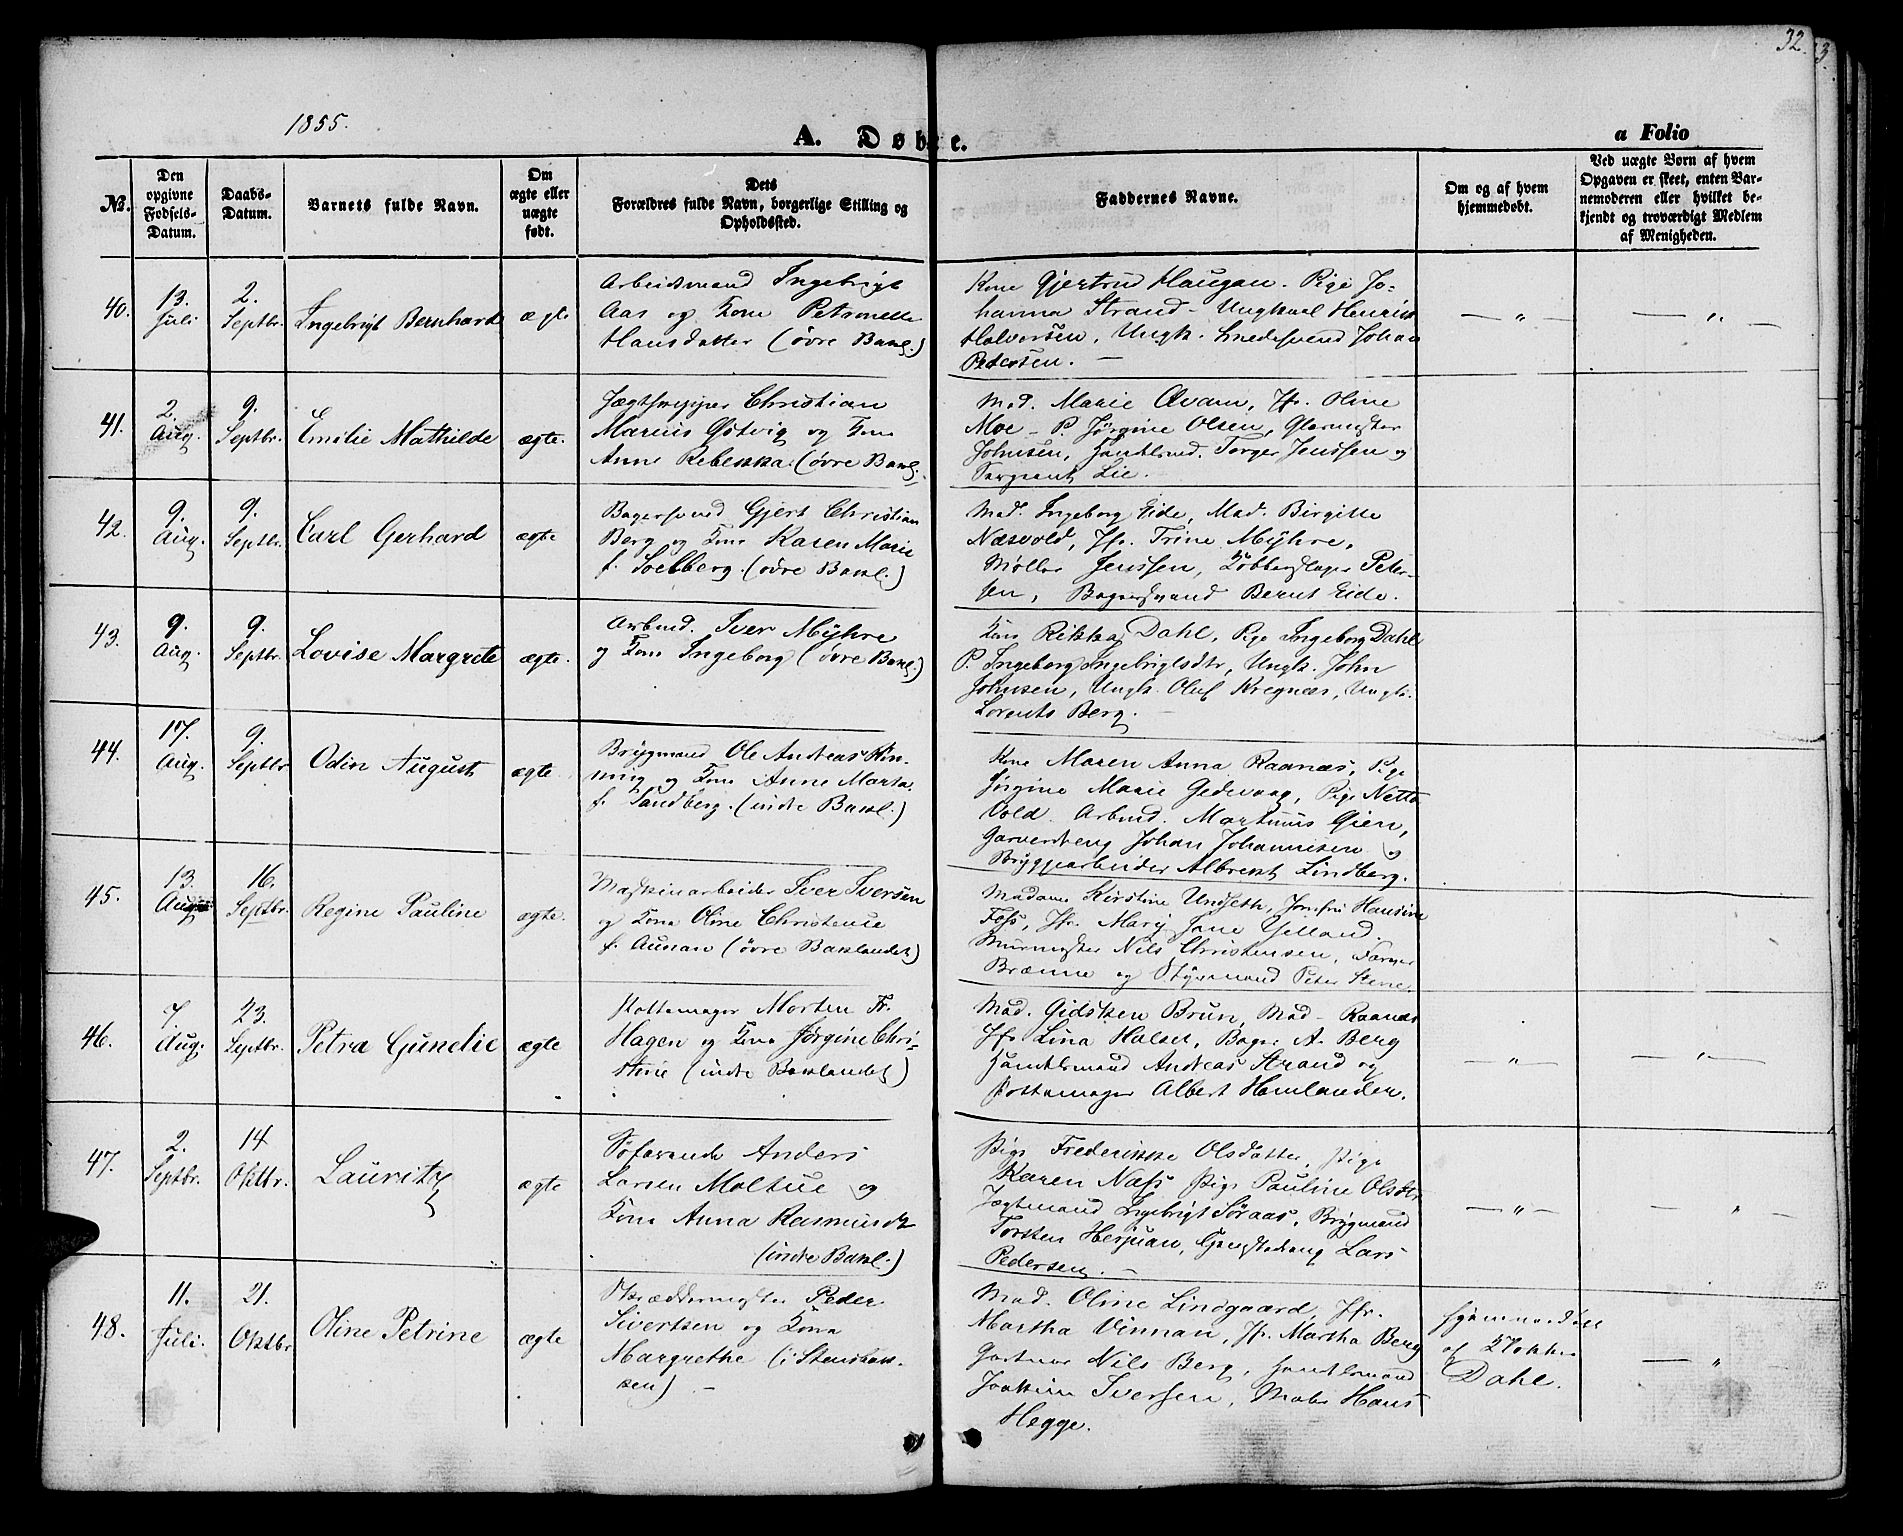 32.
3.
1855.
A. Døbte.
a Folio
No.
Den opgivne Fødsels-Datum.
Daabs-Datum.
Barnets fulde Navn.
Om ægte eller uægte født.
Dets Forældres fulde Navn, borgerlige Stilling og Opholdssted.
Faddernes Navne.
Om og af hvem hjemmedøbt.
Ved uægte Børn af hvem Opgaven er skeet, enten Barnemoderen eller hvilket bekjendt og troværdigt Medlem af Menigheden.
40.
13. Juli
2. Septbr.
Ingebrigt Bernhard
ægte
Arbeidsmand Ingebrigt
Aas og Kone Petronelle
Hansdatter (øvre Bakl.)
Kone Gjertrud Haugan. Pige Jo-
hanna Strand - Ungkarl Henrik
Halvorsen, Ungk. Smedesvend Johan
Pedersen. —
— " —
— " —
41.
2. Aug.
9. Septbr.
Emilie Mathilde
ægte.
Jægtskipper Christian
Marius Gotvig og Kone
Anne Rebekka (øvre Bakl.
Mad. Marie Qvam, Jfr. Oline
Moe - P. Jørgine Olsen, Glarmester
Johnsen, Handelsmd. Torger Jenssen og
Sergeant Lie.
42.
9. Aug.
9. Septbr.
Carl Gerhard
ægte
Bagersvend Gjert Christian
Berg og Kone Karen Marie
f. Soelberg. (øvre Bakl.)
Mad. Ingeborg Eide, Mad. Birgitte
Næsvold, Jfr. Trine Myhre,
Møller Jenssen, Kobberslager Peter-
sen, Bagersvend Bernt Eide.
43.
9. Aug.
9. Septbr.
Lovise Margrete
ægte.
Arbmd. Iver Myhre
og Kone Ingeborg (øvre Bakl.)
Kone Rikka Dahl, Pige Ingeborg Dahl
P. Ingeborg Ingebrigtsdtr, Ungk. John
Johnsen, Ungk. Oluf Kregnæs, Ungk.
Lorents Berg. —
44.
17. Aug.
9. Septbr
Odin August
ægte
Brygmand Ole Andreas Røn-
ning og Kone Anne Marta
f. Sandberg. (indre Bakl.)
Kone Maren Anna Raanæs, Pige
Jørgine Marie Gedevaag, Pige Netta
Vold. Arbmd. Martinus Gien,
Garverdreng Johan Johannesen og
Bryggearbeider Albrekt Lindberg.
45.
13. Aug.
16. Septbr.
Regine Pauline
ægte.
Maskinarbeider Iver Iversen
og Kone Oline Christense
f. Aunan (øvre Baklandet)
Madame Kirstine Undseth, Jomfru Hansine
Foss, Jfr. Mary Jane Gelland,
Murmester Nils Christensen, Farver
Brænne og Styrmand Peter Stene.
46.
7. Aug.
23. Septbr.
Petra Gunelie
ægte
Pottemager Morten Fr.
Hagen og Kone Jørgine Chri-
stine (indre Baklandet)
Mad. Gidsken Brun, Mad. Raanæs
Jfr Lina Halset, Bager A. Berg
Handelsmand Andreas Strand og
Pottemager Albert Hemlander.
— " —
— " —
47.
2. Septbr.
14 Oktbr.
Lauritz
ægte
Søfarende Anders
Larsen Moltue og
Kone Anna Rasmusdt
(indre Bakl.)
Pige Frederikke Olsdatter, Pige
Karen Næss Pige Pauline Olsdtr
Jægtmand Ingebrigt Søraas, Brygmand
Torsten Herjuan, Lars
Pedersen. —
— " —
— " —
48.
11. Juli.
21. Oktbr
Oline Petrine
ægte
Skræddermester Peder
Sivertsen og Kone
Margrethe (i Stenbak-
ken) —
Mad. Oline Lindgaard, Jfr.
Martha Vinnan, Jfr Martha Berg
Gartner Nils Berg, Handelsmand
Joakim Iversen, Maler Hans
Hegge.
Hjemmedøbt
af Klokker
Dahl.
— " —